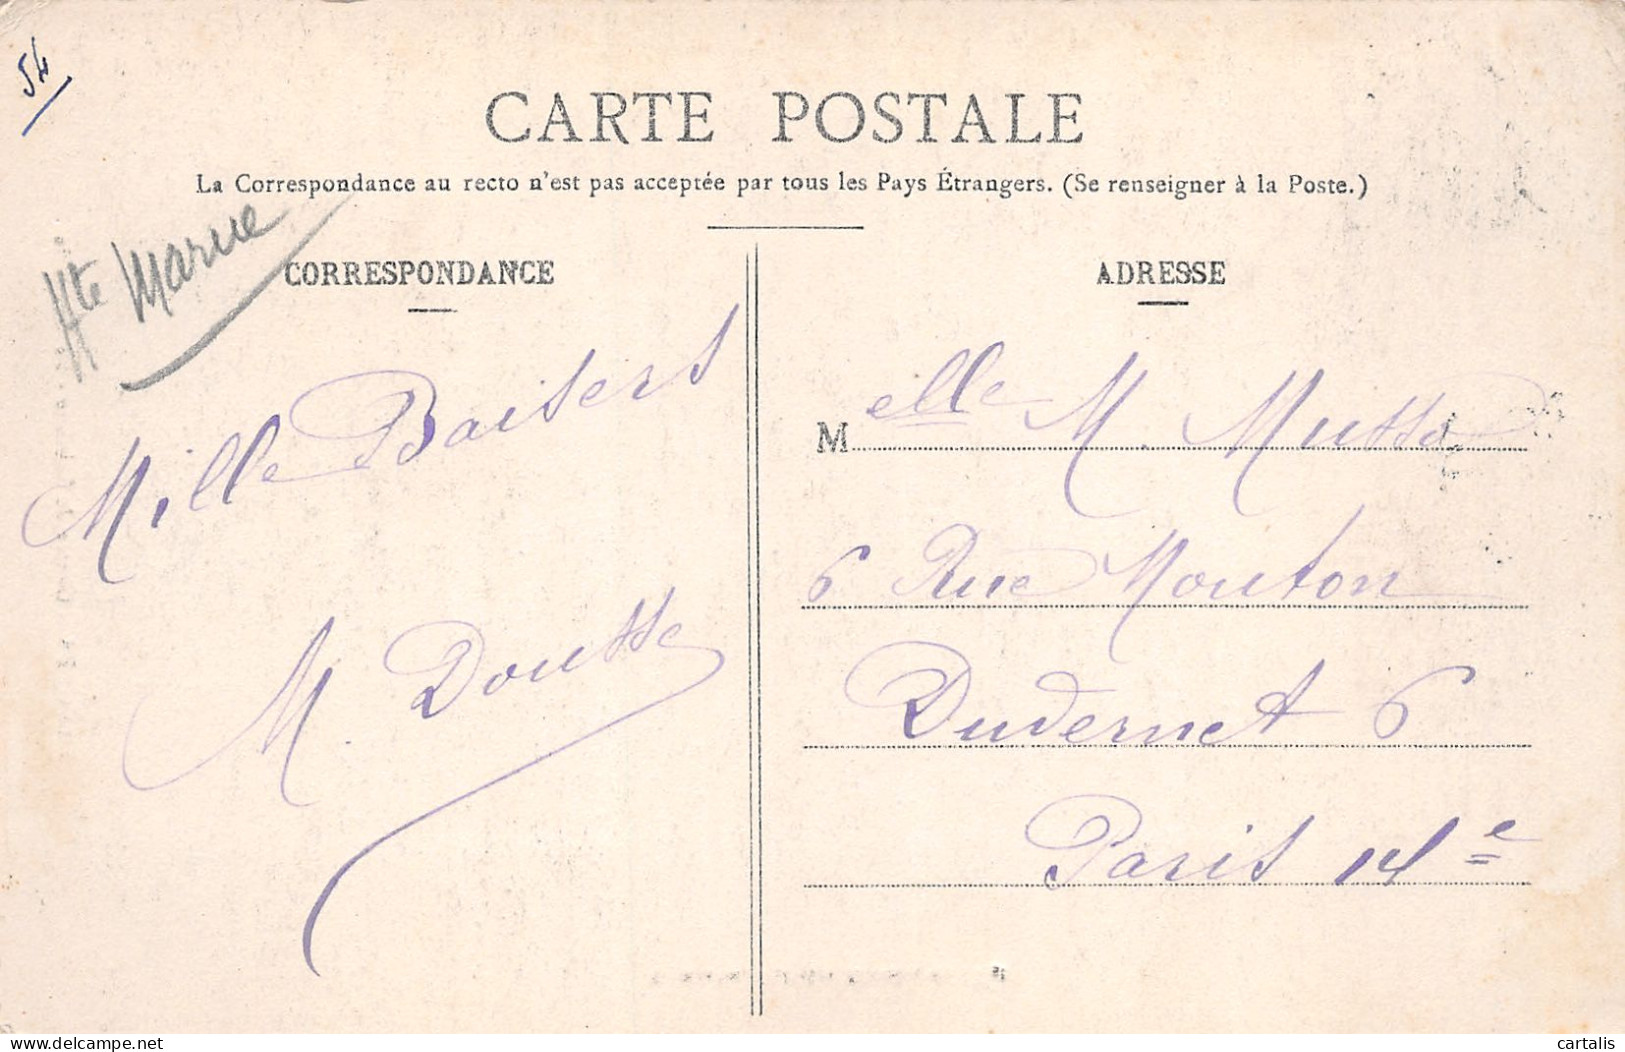 54
CARTE POSTALE
La Correspondance au recto n'est pas acceptée par tous les Pays Étrangers. (Se renseigner à la Poste.)
Hte Marne
CORRESPONDANCE
Mille Baisers
M. Doutte
ADRESSE
Melle M.
6 Rue Mouton
Duvernet 6
Paris 14e
delcampe.net
cartalis